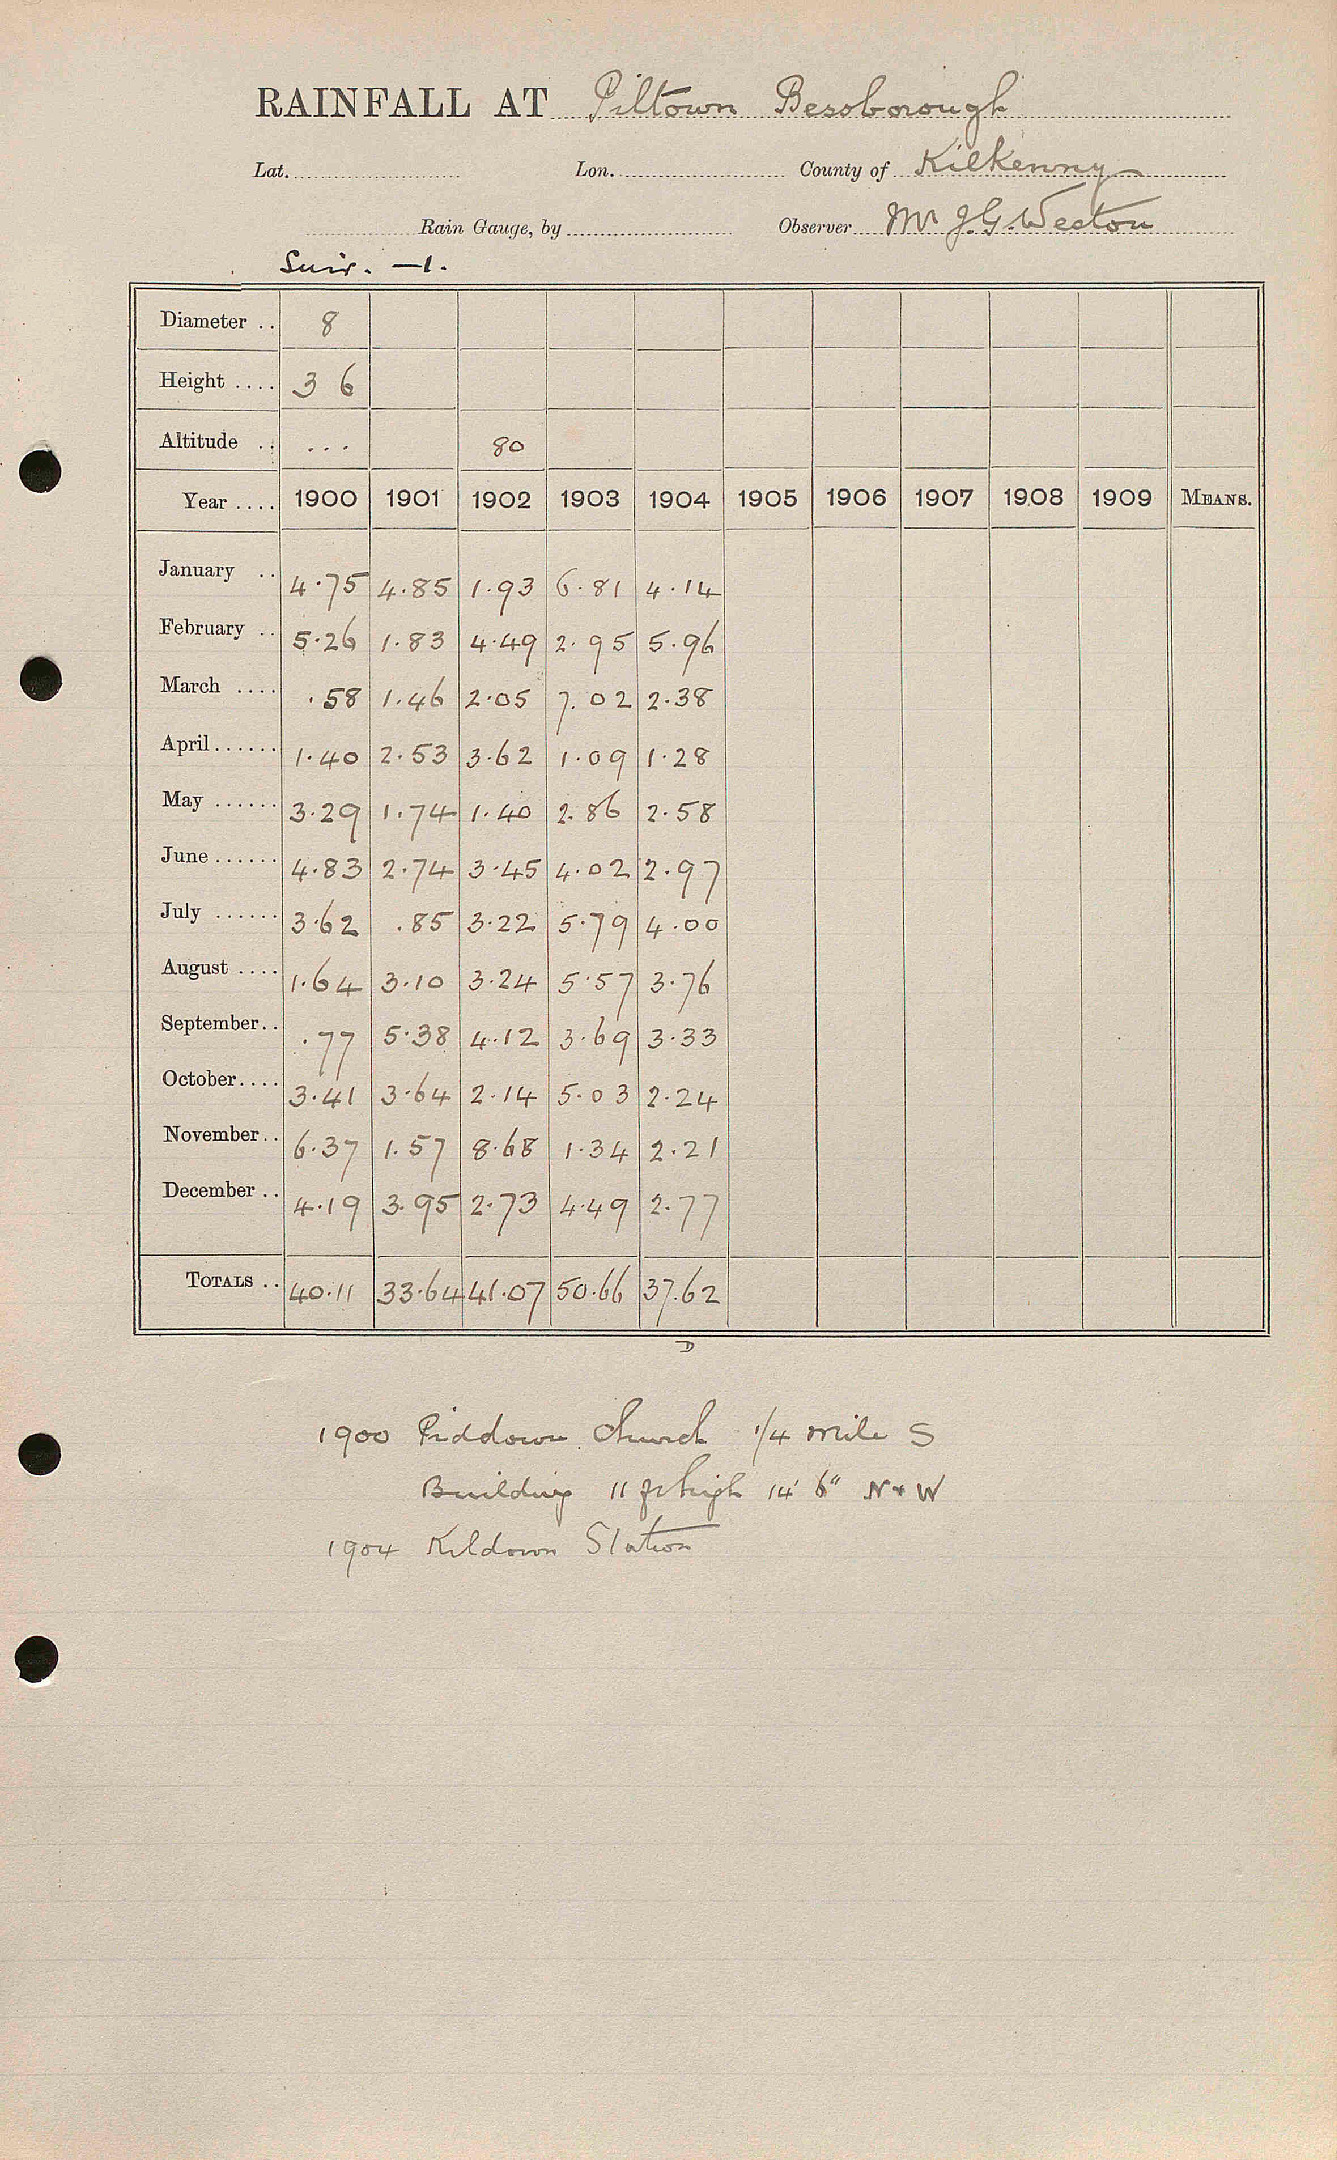 RAINFALL AT Piltown Bessborough
Lat. Lon. County of Kilkenny
Rain Gauge, by Observer Mr J. G. Weeton
Suir. —1.
Diameter .. 8
Height .... 3 6
Altitude .. ... 80
Year .... 1900 1901 1902 1903 1904 1905 1906 1907 1908 1909 MEANS.
January .. 4.75 4.85 1.93 6.81 4.14
February .. 5.26 1.83 4.49 2.95 5.96
March .... .58 1.46 2.05 7.02 2.38
April...... 1.40 2.53 3.62 1.09 1.28
May ...... 3.29 1.74 1.40 2.86 2.58
June...... 4.83 2.74 3.45 4.02 2.97
July ...... 3.62 .85 3.22 5.79 4.00
August .... 1.64 3.10 3.24 5.57 3.76
September.. .77 5.38 4.12 3.69 3.33
October.... 3.41 3.64 2.14 5.03 2.24
November.. 6.37 1.57 8.68 1.34 2.21
December .. 4.19 3.95 2.73 4.49 2.77
TOTALS .. 40.11 33.64 41.07 50.66 37.62
D
1900 Fiddown Church 1/4 mile S
Building 11 ft high 14' 6" N + W
1904 Kildown Station